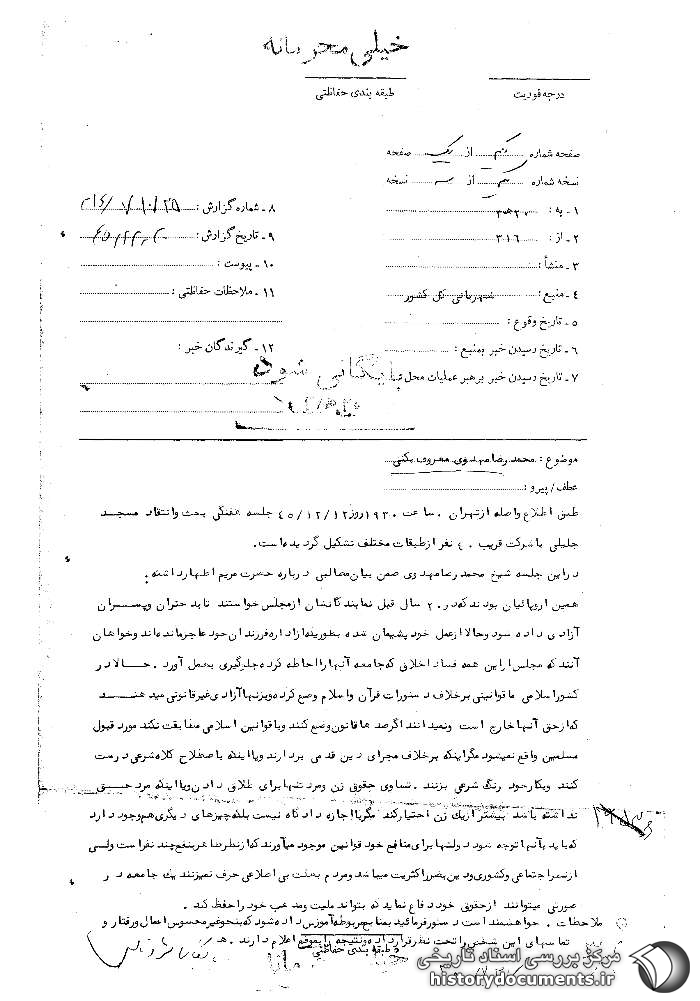 خیلی محرمانه
درجه فوریت
طبقه بندی حفاظتی
صفحه شماره یکم از یک صفحه
نسخه شماره یکم از سه نسخه
۱ـ به : ۳۰ه۳۰
۲ـ از : ۳۱۶
۳ـ منشأ :
۴ـ منبع : شهربانی کل کشور
۵ـ تاریخ وقوع :
۶ـ تاریخ رسیدن خبر بمنبع :
۷ـ تاریخ رسیدن خبر برهبر عملیات محل
۸ـ شماره گزارش :
۹ـ تاریخ گزارش :
۱۰ـ پیوست :
۱۱ـ ملاحظات حفاظتی :
۱۲ـ گیرندگان خبر :
بایگانی شود
موضوع : محمدرضا مهدوی معروف بکنی
عطف / پیرو :
طبق اطلاع واصله از تهران . ساعت ۱۹۳۰ روز ۴۵/۱۲/۱۲ جلسه هفتگی بحث وانتقاد مسجد
جلیلی با شرکت قریب ۴۰ نفر از طبقات مختلف تشکیل گردیده است .
در این جلسه شیخ محمد رضا مهدوی ضمن بیان مطالبی درباره حضرت مریم اظهار داشته :
همین اروپائیان بودند که در ۲۰ سال قبل نمایندگانشان از مجلس خواستند تا بدختران وپسران
آزادی داده شود وحالا از عمل خود پشیمان شده بطوریکه از اداره فرزندان خود عاجر مانده اند وخواهان
آنند که مجلس از این همه فساد اخلاقی که جامعه آنها را احاطه کرده جلوگیری بعمل آورد . حالا در
کشور اسلامی ما قوانینی بر خلاف دستورات قرآن واسلام وضع کرده وبزنها آزادی غیر قانونی میدهند
که از حق آنها خارج است ونمیدانند اگر صدها قانون وضع کنند وبا قوانین اسلامی مطابقت نکند مورد قبول
مسلمین واقع نمیشود مگر اینکه بر خلاف مجرای دین قدمی بردارند ویا اینکه باصطلاح کلاه شرعی درست
کنند وبکار خود رنگ شرعی بزنند . تساوی حقوق زن ومرد تنها برای طلاق دادن ویا اینکه مرد حق
نداشته باشد بیشتر از یک زن اختیار کند مگر با اجازه دادگاه نیست بلکه چیزهای دیگری هم وجود دارد
که باید بآنها توجه شود دولتها برای منافع خود قوانین بوجود میآورند که از نظرها ضربنفع چند نفر است ولی
از نظر اجتماعی وکشوری ودین بضرر اکثریت میباشد ومردم بعلت بی اطلاعی حرف نمیزنند یک جامعه در
صورتی میتوانند از حقوق خود دفاع نماید که بتواند ملیت ومذهب خود را حفظ کند .
ملاحظات . خواهشمند است دستور فرمائید بمنابع مربوطه آموزش داده شود که بنحو غیر محسوس اعمال ورفتار و
تماسهای این شخص را تحت نظر قرار داده ونتیجه را بموقع اعلام دارند . ه
طبقه بندی حفاظتی
مرکز بررسی اسناد تاریخی
historydocuments.ir